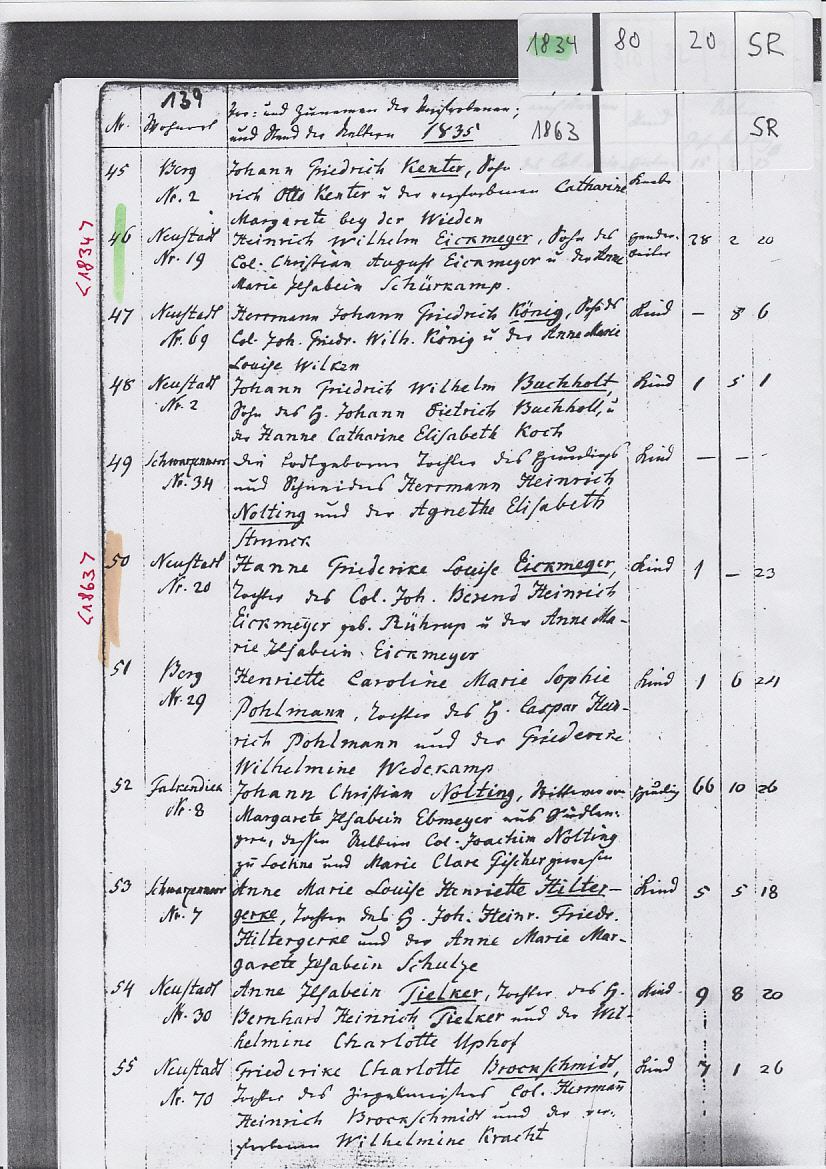 1834 80 20 SR
1863 SR
139
Nr. Wohnort Vor- und Zunamen der Verstorbenen,
und Stand der Aeltern 1835
45 Berg Johann Friedrich Kenter, Sohn
Nr. 2 rich Otto Kenter u der verstorbenen Catharine Knabe
Margarete bey der Wieden
<1834>
46 Neustadt Heinrich Wilhelm Eickmeyer, Sohn des 28 2 20
Nr. 19 Col. Christian August Eickmeyer u der Anne
Marie Ilsabein Schürkamp.
47 Neustadt Herrmann Johann Friedrich König, Sohn d. Kind – 8 6
Nr. 69 Col. Joh. Friedr. Wilh. König u der Anne Marie
Louise Wilken
48 Neustadt Johann Friedrich Wilhelm Buchholt, Kind 1 5 1
Nr. 2 Sohn des H. Johann Dietrich Buchholt, u
der Hanne Catharine Elisabeth Koch
49 Schwarzenmoor die todtgeborene Tochter des Heuerlings Kind – – –
Nr. 34 und Schneiders Herrmann Heinrich
Nolting und der Agnethe Elisabeth
Strunck
<1863>
50 Neustadt Hanne Friederike Louise Eickmeyer, Kind 1 – 23
Nr. 20 Tochter des Col. Joh. Berend Heinrich
Eickmeÿer geb. Rührup u der Anne Ma-
rie Ilsabein Eickmeyer
51 Berg Henriette Caroline Marie Sophie Kind 1 6 24
Nr. 29 Pohlmann, Tochter des H. Caspar Hein-
rich Pohlmann und der Friedericke
Wilhelmine Wedekamp
52 Falkendiek Johann Christian Nolting, Wittwer von Heuerling 66 10 26
Nr. 8 Margarete Ilsabein Ebmeyer aus Südlen-
gern, dessen Aeltern Col. Joachim Nolting
zu und Marie Clare Fischer gewesen
53 Schwarzenmoor Anne Marie Louise Henriette Hilter- Kind 5 5 18
Nr. 7 gerke, Tochter des H. Joh. Heinr. Friedr.
Hiltergerke und der Anne Marie Mar-
garete Ilsabein Schulze
54 Neustadt Anne Ilsabein Tielker, Tochter des H. Kind 9 8 20
Nr. 30 Bernhard Heinrich Tielker und der Wil-
helmine Charlotte Uphof
55 Neustadt Friederike Charlotte Brockschmidt, Kind 7 1 26
Nr. 70 Tochter des Ziegelmeisters Col. Herrman̅
Heinrich Brockschmidt und der ver-
storbenen Wilhelmine Kracht